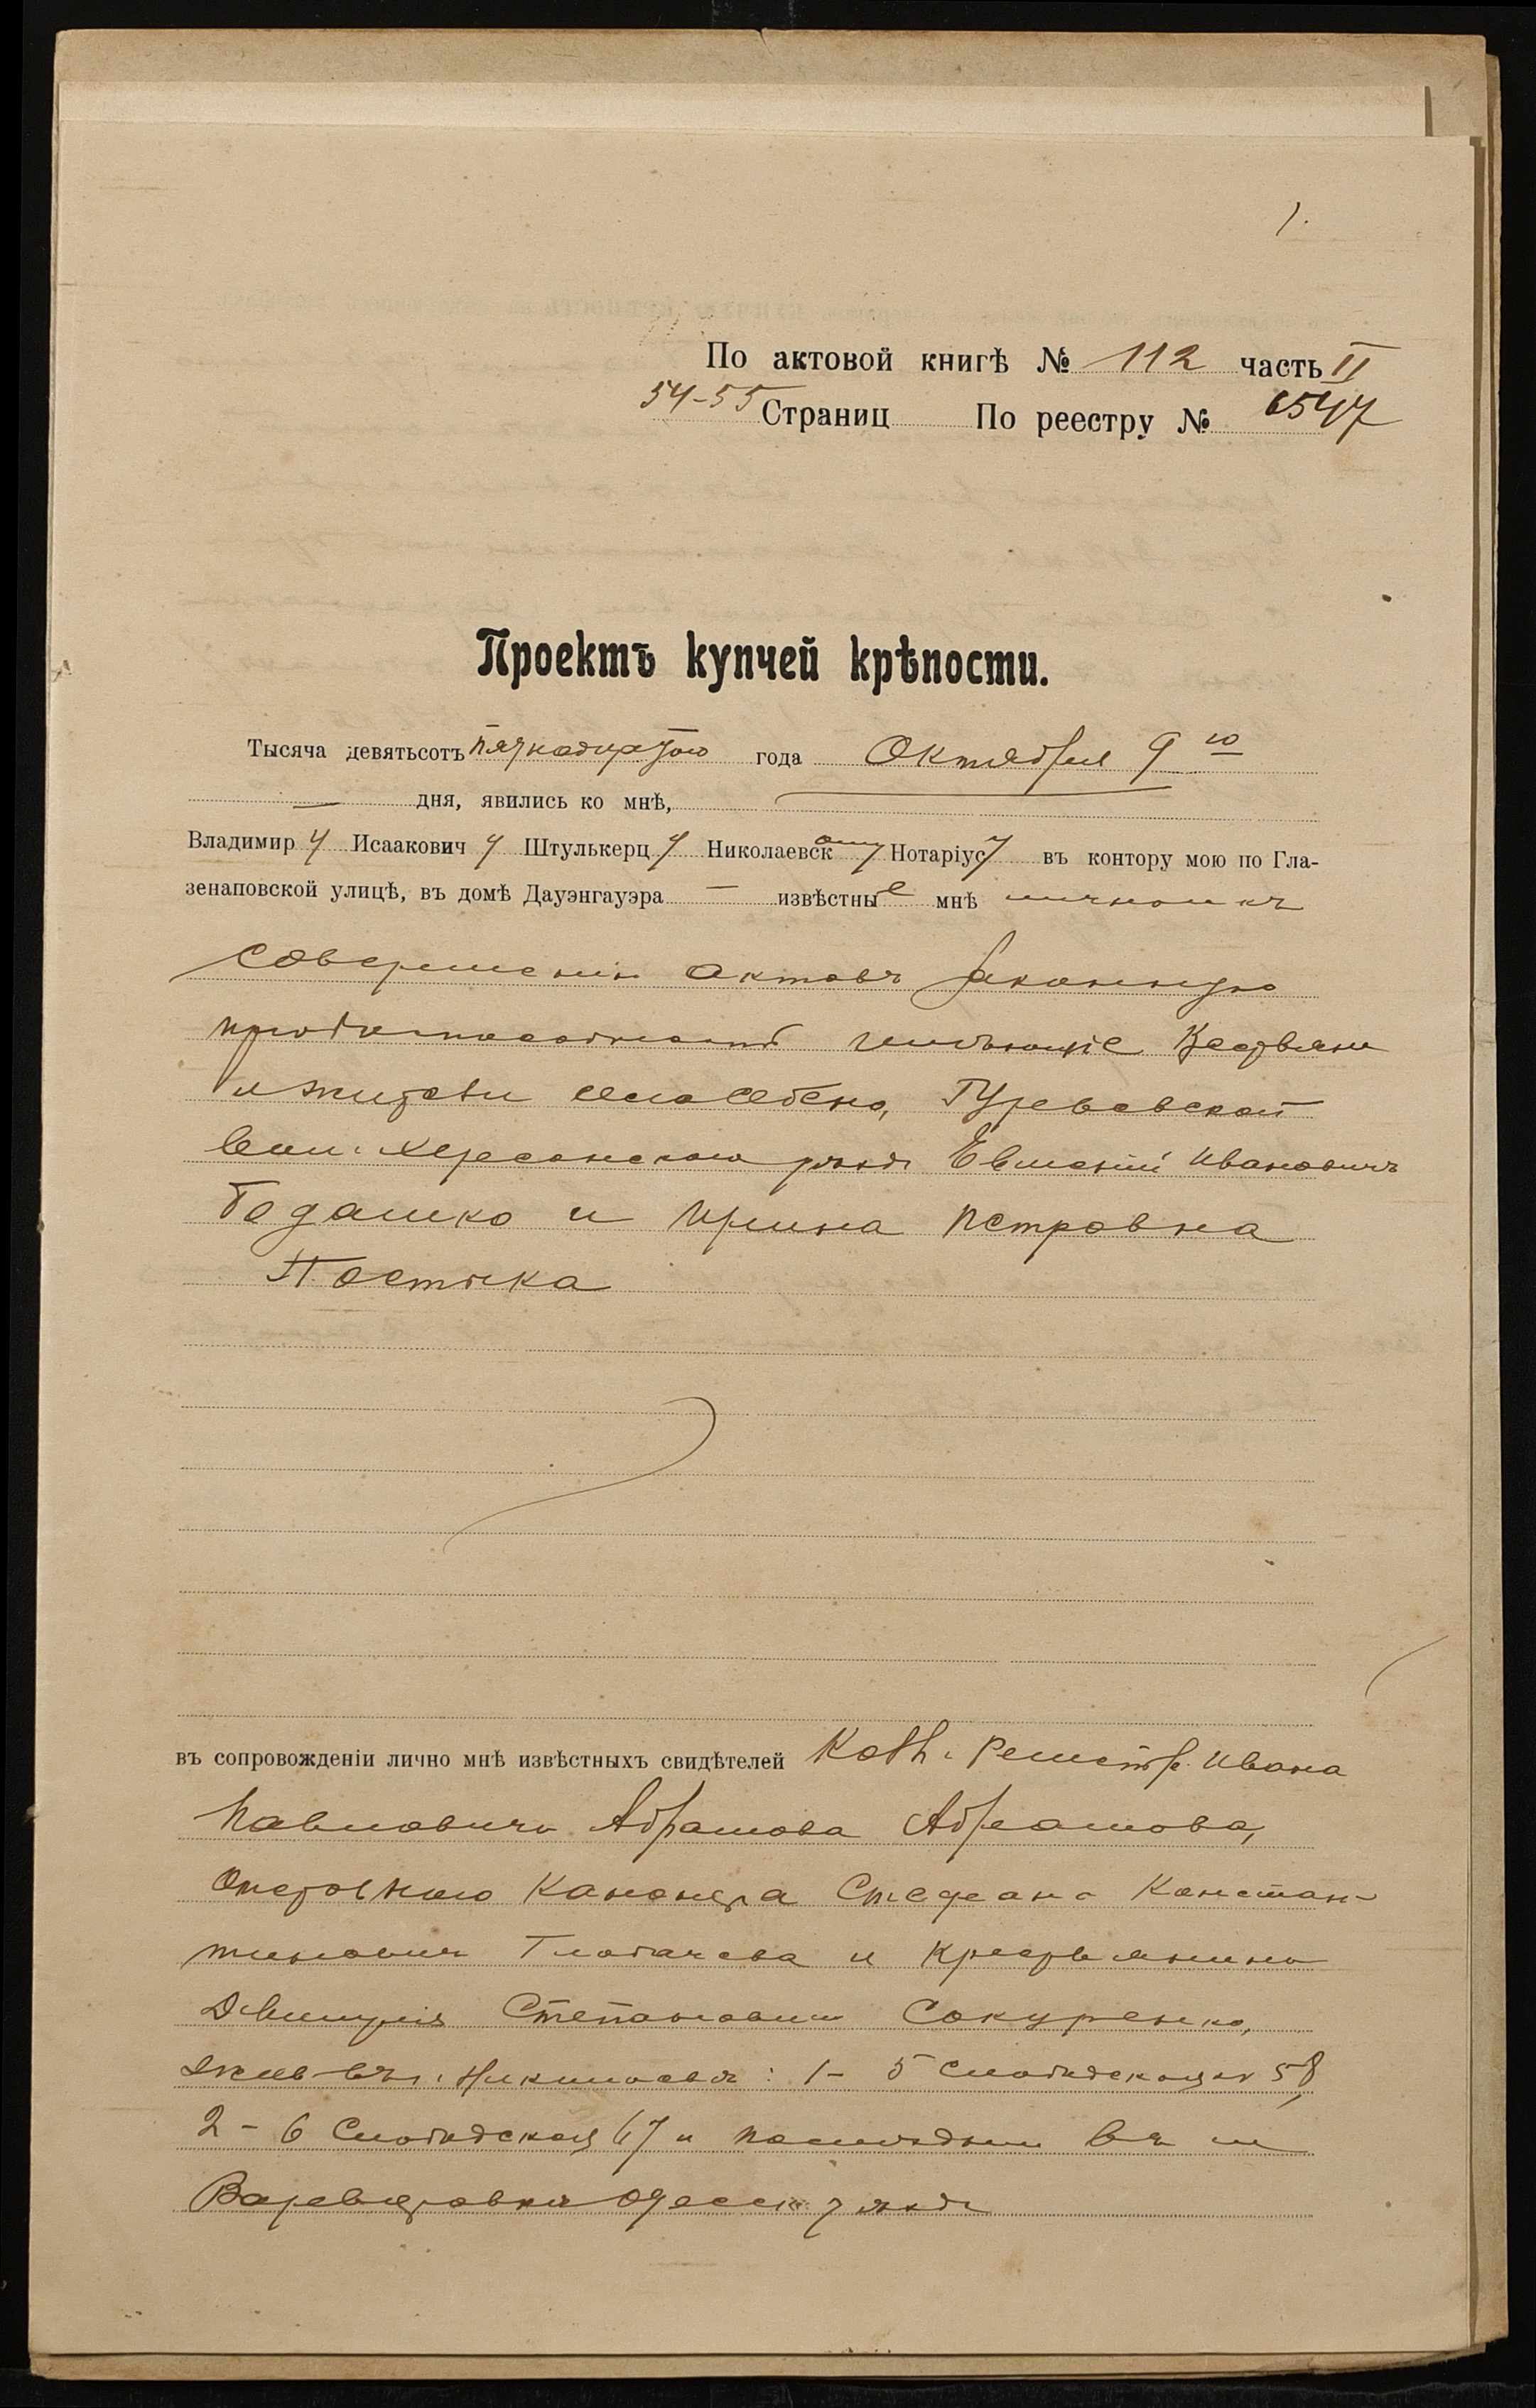 1.
По актовой книгѣ № 112 часть II
54-55 Страниц По реестру № 6547
Проектъ купчей крѣпости.
Тысяча девятьсотъ пятнадцатого года Октября 9 го
дня, явились ко мнѣ,
Владимир у Исаакович у Штулькерц у Николаевск ому Нотаріус у въ контору мою по Гла-
зенаповской улицѣ, въ домѣ Дауэнгауэра — извѣстны е мнѣ лично и къ
совершенію актовъ законную
имѣющіе
и жители села Себено,
вол. Херсонскаго уѣзда Евменій Ивановичъ
и Ирина Петровна
Постыка
въ сопровожденіи лично мнѣ извѣстныхъ свидѣтелей Ивана
Павловича Абрамова Абрамова,
Отставного Канонера Стефана Констан-
тиновича и крестьянина
Дмитрія Степановича Сокуренко,
живъ въ г. Николаевѣ: 1- 5 Слободская 58,
2 - 6 Слободская 67 и послѣдній въ м
Варваровкѣ Одесск уѣзда